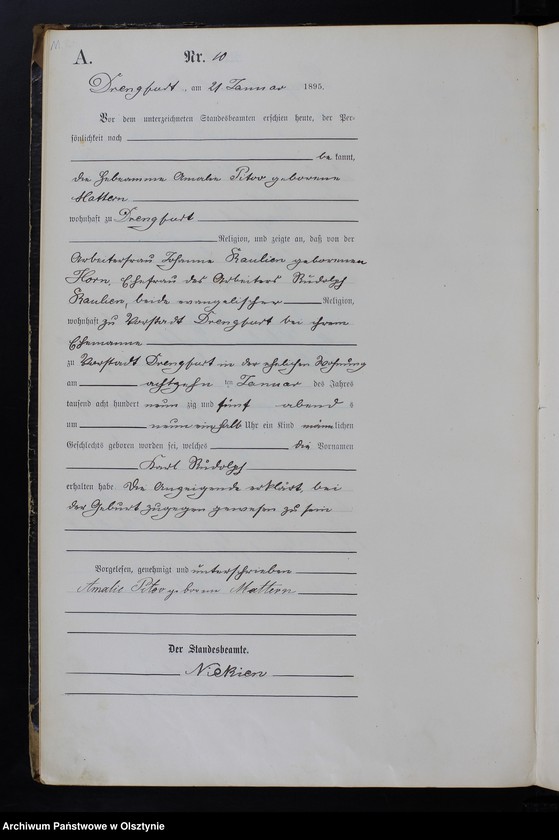 A. Nr. 10
Drengfurt, am 21 Januar 1895.
Vor dem unterzeichneten Standesbeamten erschien heute, der Per-
sönlichkeit nach
be kannt,
die Hebeamme Amalie Pitor geborene
Mattern
wohnhaft zu Drengfurt
Religion, und zeigte an, daß von der
Arbeiterfrau Johanne Kaulien geborenen
Horn, Ehefrau des Arbeiters Rudolph
Kaulien, beide evangelischer Religion,
wohnhaft zu Vorstadt Drengfurt bei ihrem
Ehemanne
zu Vorstadt Drengfurt in der ehelichen Wohnung
am achtzehn ten Januar des Jahres
tausend acht hundert neun zig und fünf abend s
um neun ein halb Uhr ein Kind männlichen
Geschlechts geboren worden sei, welches die Vornamen
Karl Rudolph
erhalten habe Die Anzeigende erklärt, bei
der Geburt zugegen gewesen zu sein
Vorgelesen, genehmigt und unterschrieben
Amalie Pitor geborene Mattern
Der Standesbeamte.
Archiwum Państwowe w Olsztynie